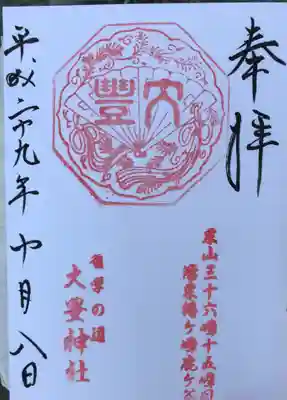 奉拝
東山三十六峰十五峰目
大豊
哲学の道
大豊神社
平成二十九年十月八日